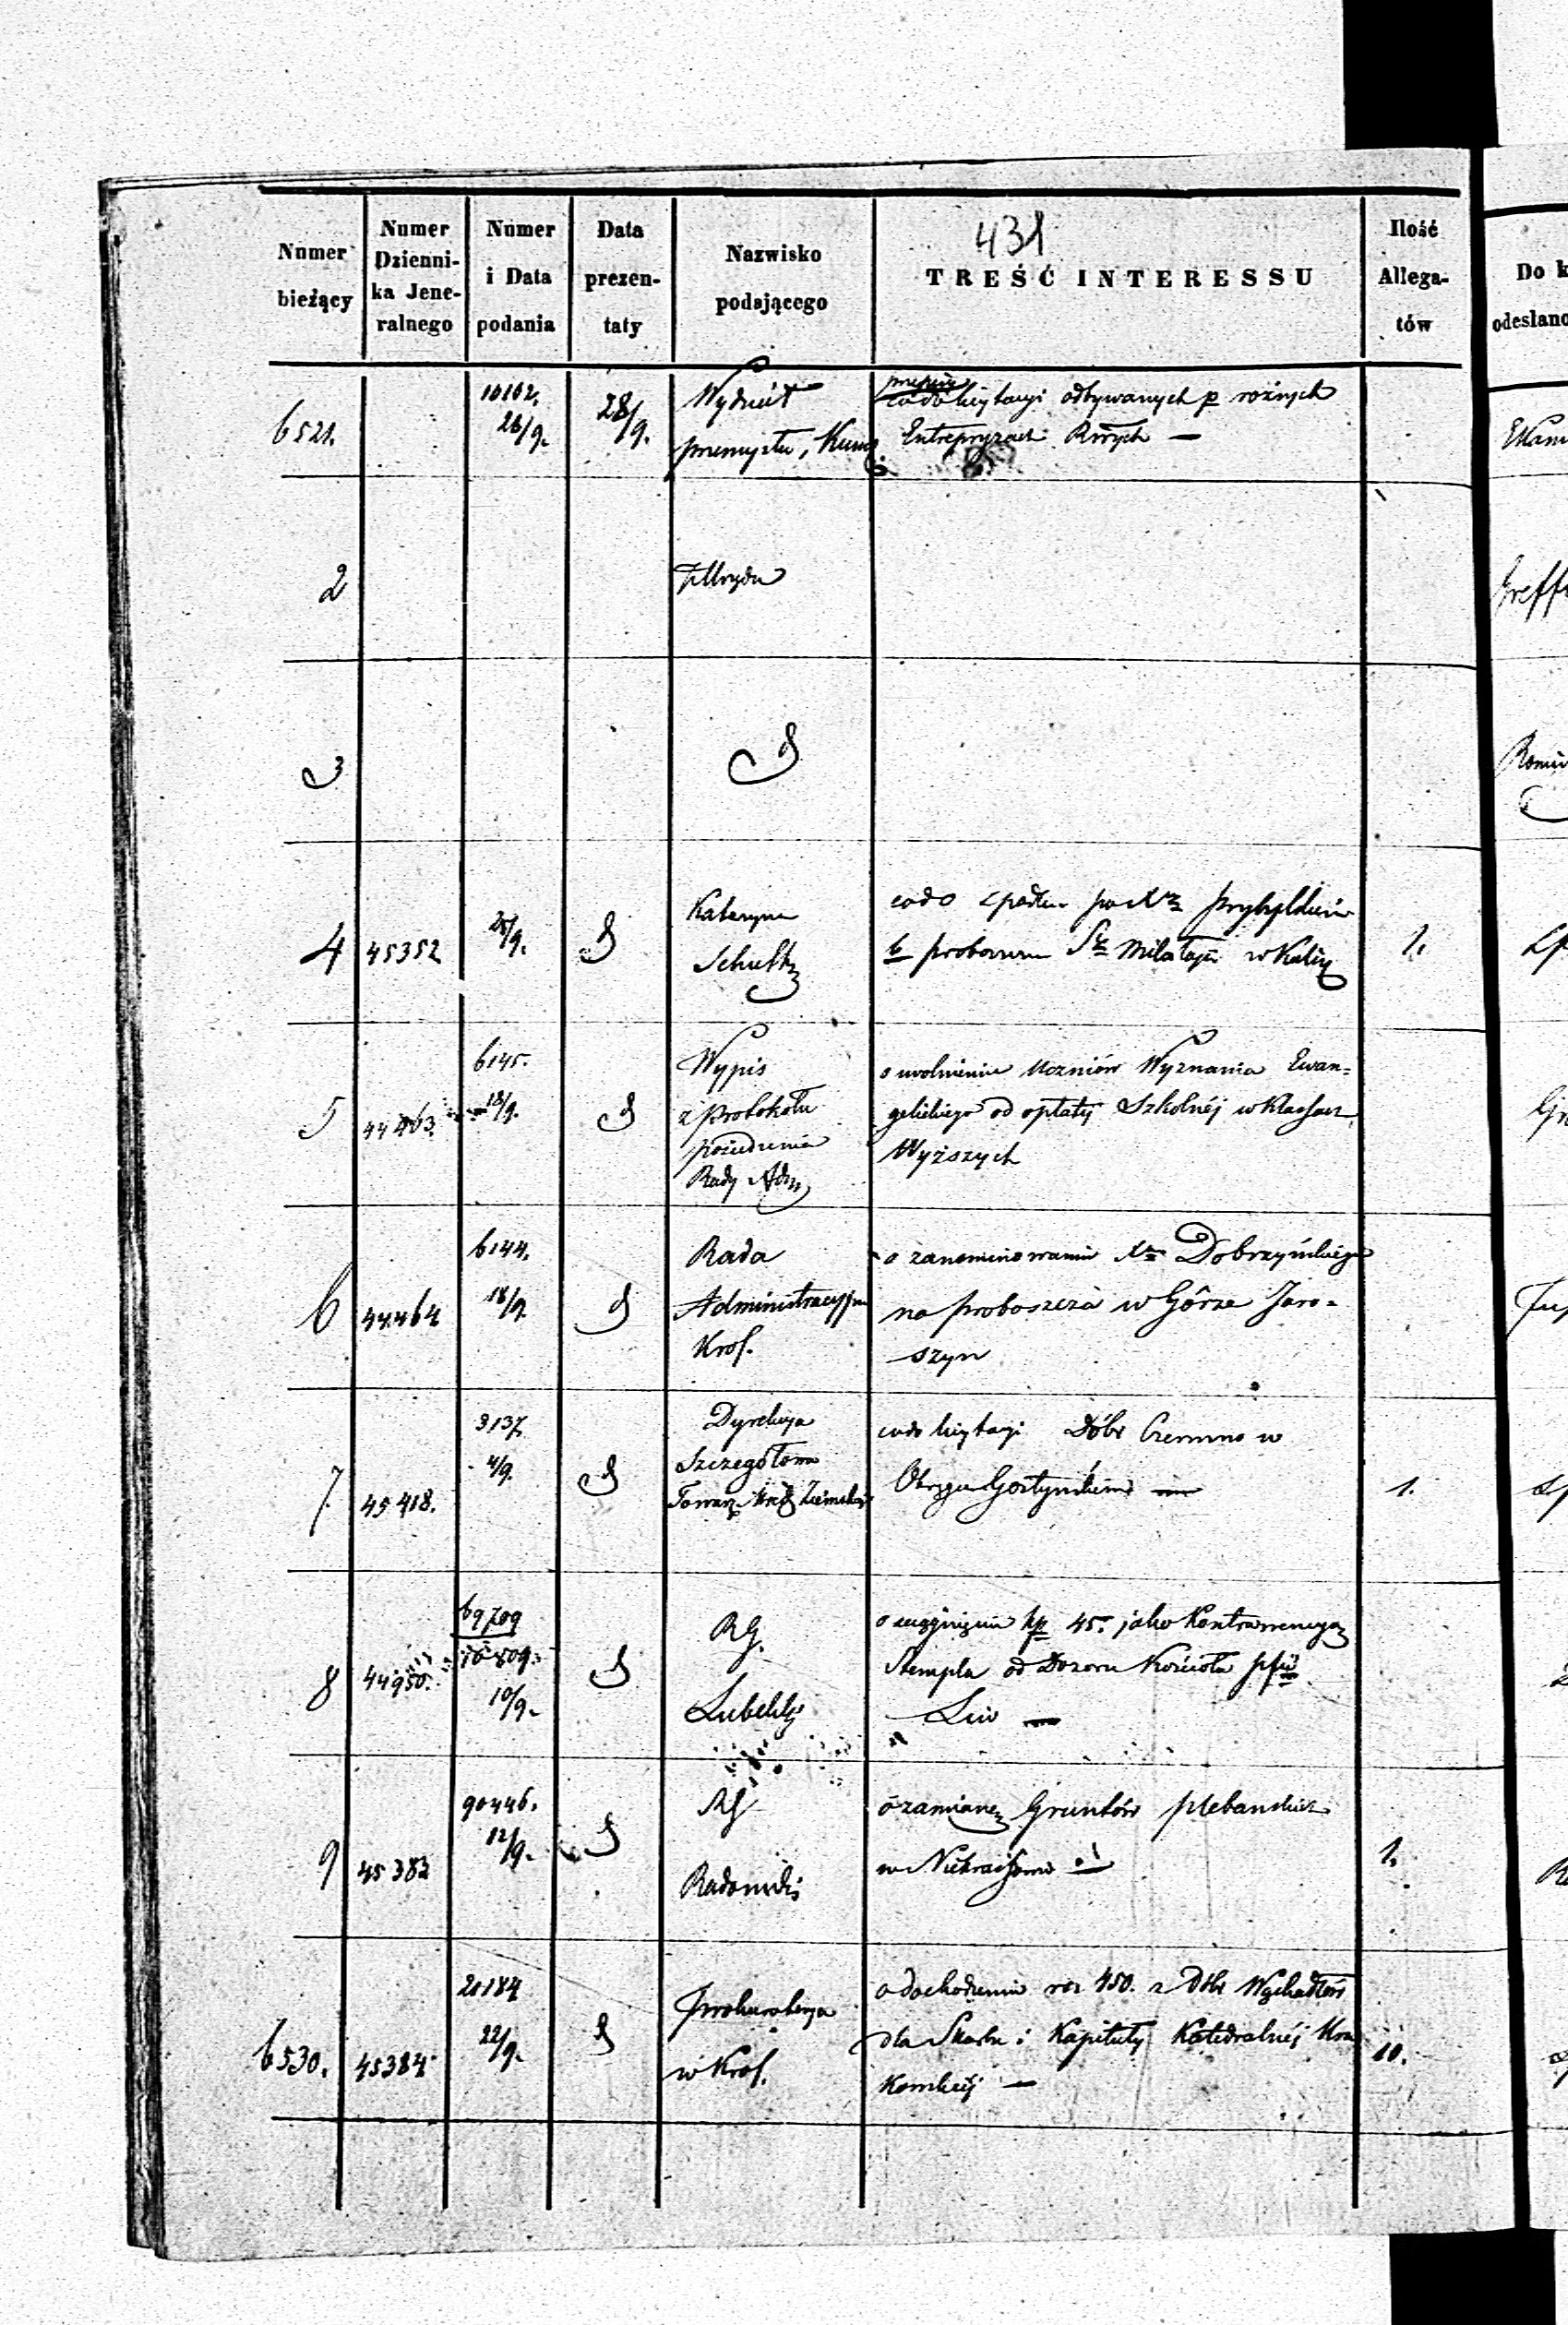 431
Numer bieżący
Numer Dzienni-ka Jene-ralnego
Numer i Data podania
Data prezen-taty
Nazwisko podającego
TREŚĆ INTERESSU
Ilość Allega-tów
Do k
odesłano
6521.
10102.
28/9.
28/9.
Wydział
przemysłu, Kunsz
co do licytacyi odbywanych p rożnych
Entrepryzach
2
3
4
45352
25/9.
Katarzyna
Schultz
co do spadku po
b proboszczu w Kalisz
1.
5
44463.
6145.
18/9.
Wypis
z protokółu
posiedzenia
Rady Adm
o uwolnieniu Uczniów Wyznania Ewan=
gelickiego od opłaty Szkolnéj w Klassach
Wyższych
6
44464
6144.
18/9.
Rada
Administracyjna
Król.
o zanominowaniu Xa Dobrzyńskiego
na proboszcza w Górze Jaro=
szyn
7
45418.
3137.
4/9.
Dyrekcya
Szczegółowa
Towarz Kred Ziemskiego
co do licytacyi Dóbr Czermno w
Okręgu Gostyńskim —
1.
8
44950.
69709
10/9.
RG.
Lubelski
45. jako Kontrawencya
Stempla od Dozoru Kościoła
Liw —
9
45383
90446.
12/9.
RG
Radomski
o zamianę Gruntów plebanskich
w
1.
6530.
45384
20184
22/9.
Prokuratorya
w Król.
o dochodzeniu 450. z Dóbr
dla Skarbu i Kapituły Katedralnéj Kra
kowskiéj —
10.